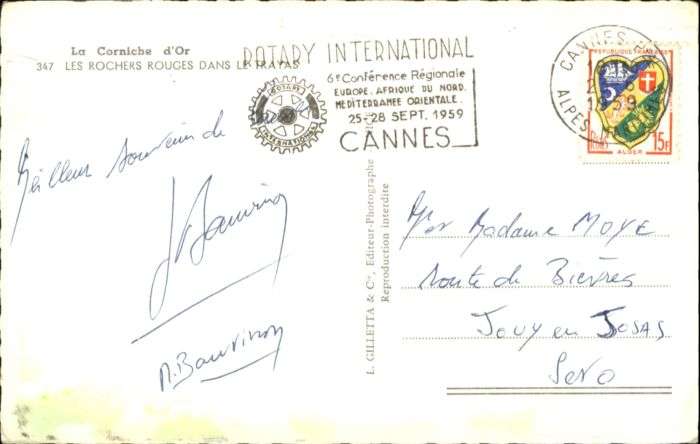 La Corniche d'Or
347 LES ROCHERS ROUGES DANS LE TRAYAS
ROTARY INTERNATIONAL
6e Conférence Régionale
EUROPE. AFRIQUE DU NORD.
MEDITERRANEE ORIENTALE.
25-28 SEPT. 1959
CANNES
ROTARY
INTERNATIONAL
CANNES
ALPES
REPUBLIQUE FRANÇAISE
POSTES
15F
ALGER
Meilleur souvenir de
M. Bauvinon
L. GILLETTA & Cie, Editeur-Photographe
Reproduction interdite
Mr Madame MOYE
Route de Bièvres
Jouy en Josas